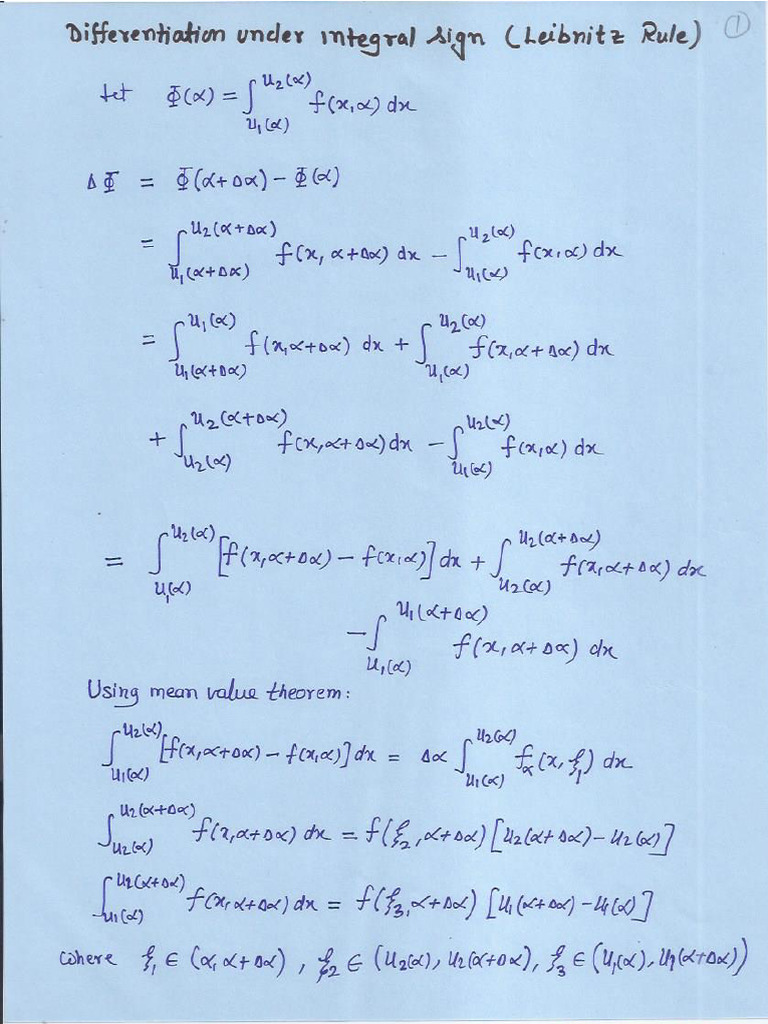 Differentiation under integral sign (Leibnitz Rule) ①
Let Φ(α) = ∫_{u₁(α)}^{u₂(α)} f(x,α) dx
ΔΦ = Φ(α+Δα) − Φ(α)
= ∫_{u₁(α+Δα)}^{u₂(α+Δα)} f(x, α+Δα) dx − ∫_{u₁(α)}^{u₂(α)} f(x,α) dx
= ∫_{u₁(α+Δα)}^{u₁(α)} f(x,α+Δα) dx + ∫_{u₁(α)}^{u₂(α)} f(x,α+Δα) dx
+ ∫_{u₂(α)}^{u₂(α+Δα)} f(x,α+Δα) dx − ∫_{u₁(α)}^{u₂(α)} f(x,α) dx
= ∫_{u₁(α)}^{u₂(α)} [f(x,α+Δα) − f(x,α)] dx + ∫_{u₂(α)}^{u₂(α+Δα)} f(x,α+Δα) dx
− ∫_{u₁(α)}^{u₁(α+Δα)} f(x,α+Δα) dx
Using mean value theorem:
∫_{u₁(α)}^{u₂(α)} [f(x,α+Δα) − f(x,α)] dx = Δα ∫_{u₁(α)}^{u₂(α)} f_α(x,ξ₁) dx
∫_{u₂(α)}^{u₂(α+Δα)} f(x,α+Δα) dx = f(ξ₂,α+Δα) [u₂(α+Δα) − u₂(α)]
∫_{u₁(α)}^{u₁(α+Δα)} f(x,α+Δα) dx = f(ξ₃,α+Δα) [u₁(α+Δα) − u₁(α)]
where ξ₁ ∈ (α,α+Δα), ξ₂ ∈ (u₂(α), u₂(α+Δα)), ξ₃ ∈ (u₁(α), u₁(α+Δα))